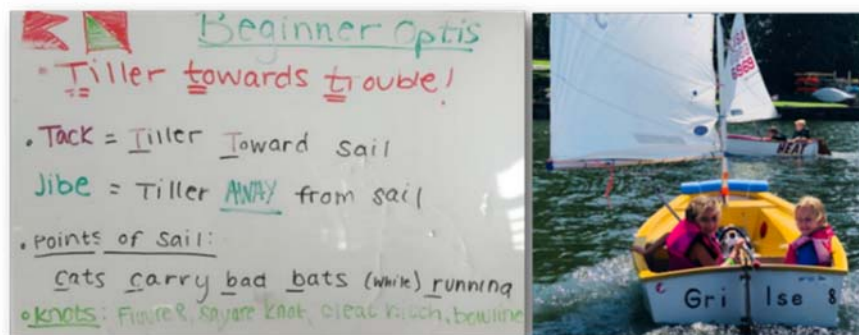 Beginner Optis
• Tiller towards trouble!
• Tack = Tiller Toward sail
Jibe = Tiller AWAY from sail
• Points of Sail:
Cats carry bad bats (while) running
• Knots: Figure 8, square knot, cleat hitch, bowline
USA
6969
HEAT
Gri lse 8